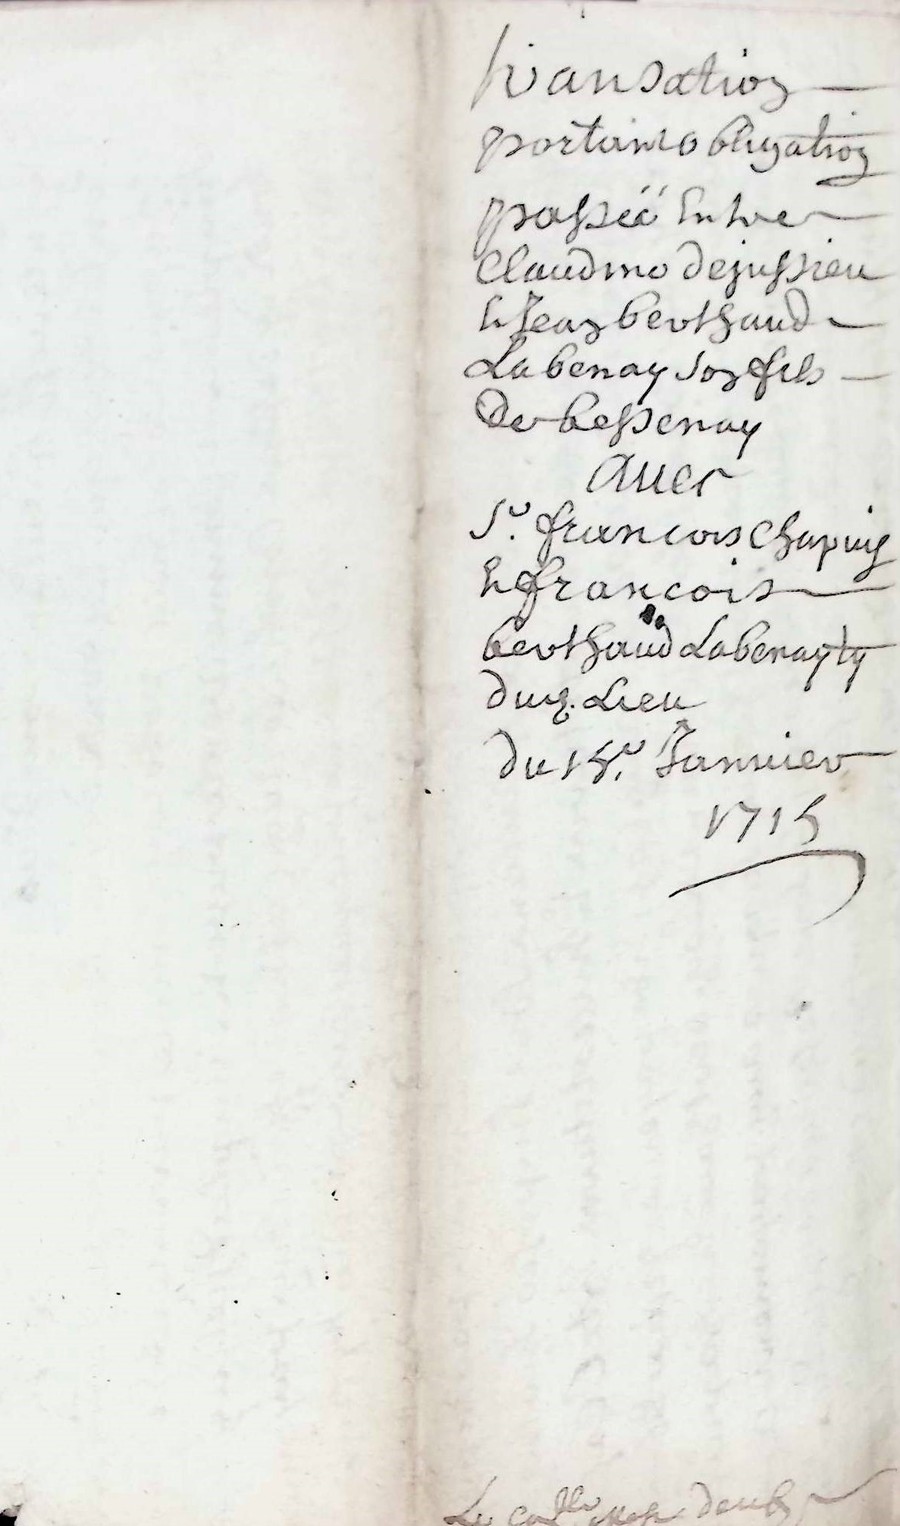 transation
portant obligation
passéé Entre
Claudine dejussieu
Et Jean berthaud
Labenay son fils
De bessenay
Avec
Sr. francois Chapuis
Et francois
berthaud Labenay
dud. Lieu
du 15e. Janvier
1715